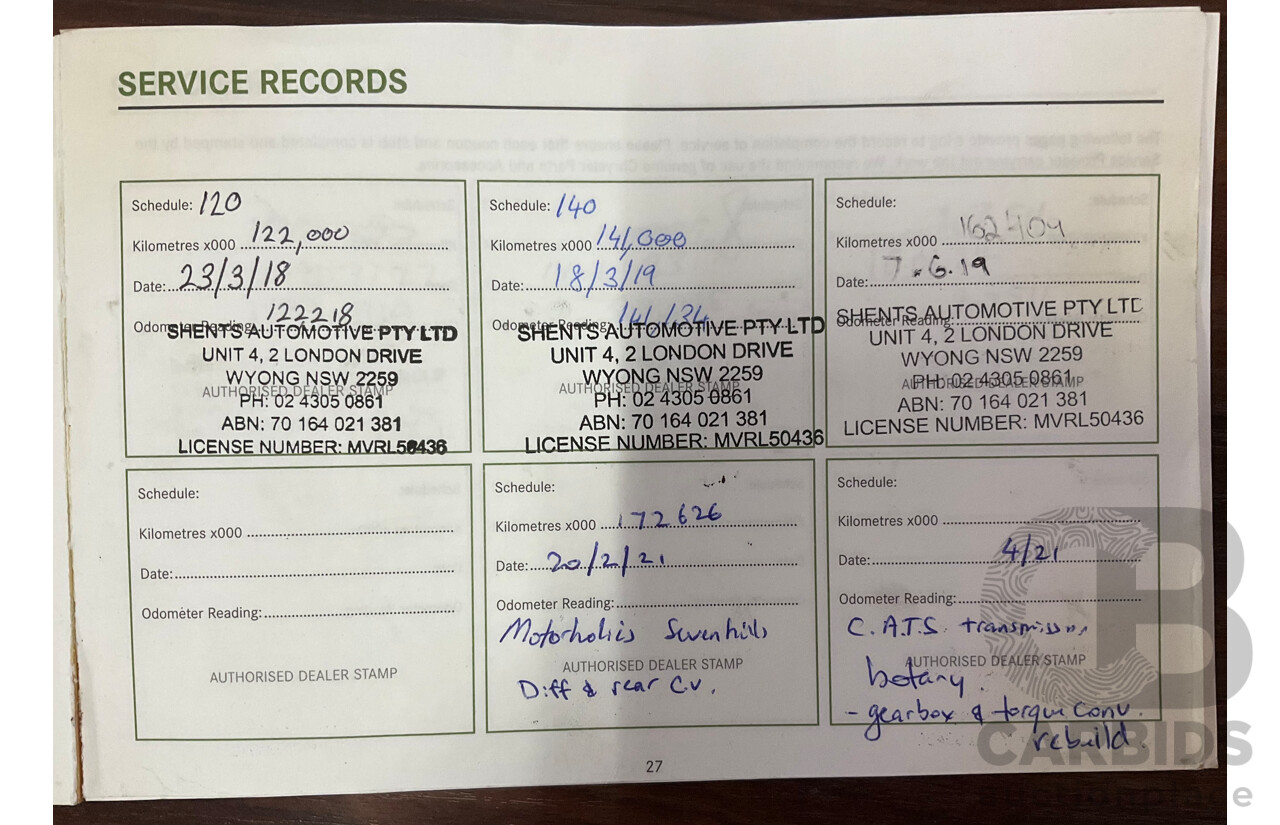 SERVICE RECORDS
Schedule: 120
Kilometres x000 122,000
Date: 23/3/18
Odometer Reading: 122218
SHENTS AUTOMOTIVE PTY LTD
UNIT 4, 2 LONDON DRIVE
WYONG NSW 2259
AUTHORISED DEALER STAMP
PH: 02 4305 0861
ABN: 70 164 021 381
LICENSE NUMBER: MVRL50436
Schedule: 140
Kilometres x000 141,000
Date: 18/3/19
Odometer Reading: 141,134
SHENTS AUTOMOTIVE PTY LTD
UNIT 4, 2 LONDON DRIVE
WYONG NSW 2259
AUTHORISED DEALER STAMP
PH: 02 4305 0861
ABN: 70 164 021 381
LICENSE NUMBER: MVRL50436
Schedule:
Kilometres x000 162409
Date: 7.6.19
Odometer Reading:
SHENTS AUTOMOTIVE PTY LTD
UNIT 4, 2 LONDON DRIVE
WYONG NSW 2259
PH: 02 4305 0861
AUTHORISED DEALER STAMP
ABN: 70 164 021 381
LICENSE NUMBER: MVRL50436
Schedule:
Kilometres x000
Date:
Odometer Reading:
AUTHORISED DEALER STAMP
Schedule:
Kilometres x000 172626
Date: 20/2/21
Odometer Reading:
Motorholics Sevenhills
AUTHORISED DEALER STAMP
Diff & rear C.V.
Schedule:
Kilometres x000
Date: 4/21
Odometer Reading:
C.A.T.S. transmission
AUTHORISED DEALER STAMP
botany.
- gearbox & torque conv.
rebuild.
27
CARBIDS